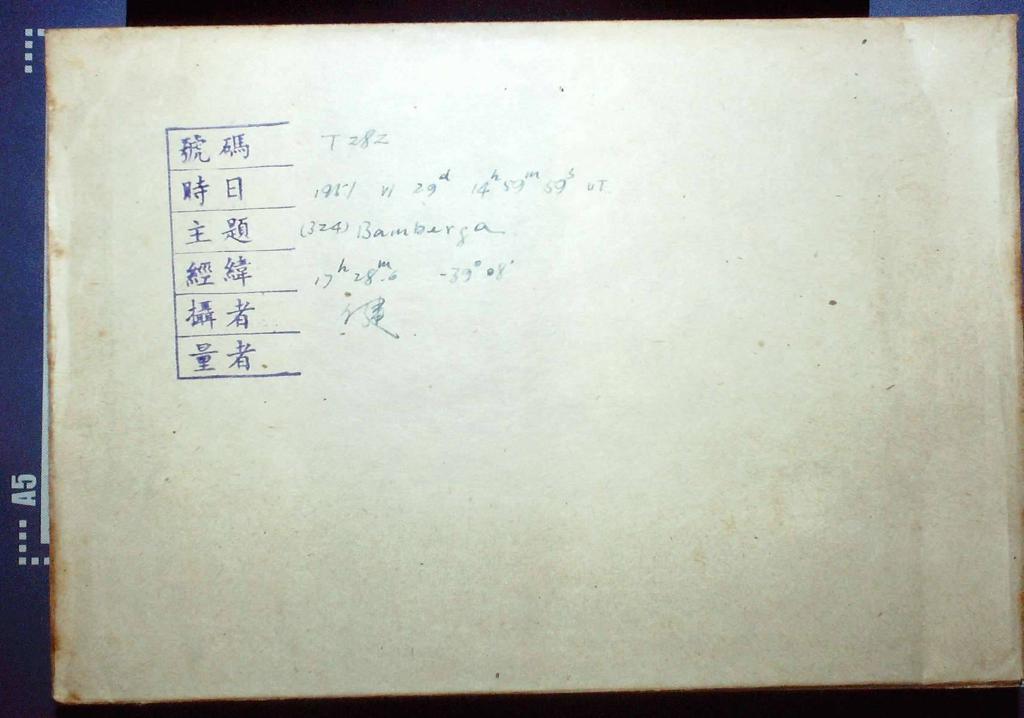 號碼 T 282
時日 1951 VI 29ᵈ 14ʰ 59ᵐ 59ˢ UT
主題 (324) Bamberga
經緯 17ʰ 28ᵐ.6 -39° 08'
攝者 健
量者
A5